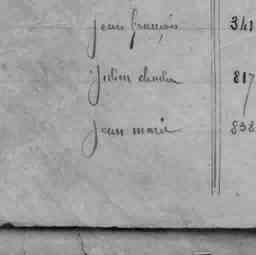 jean françois 341
julien 817
jean marie 838